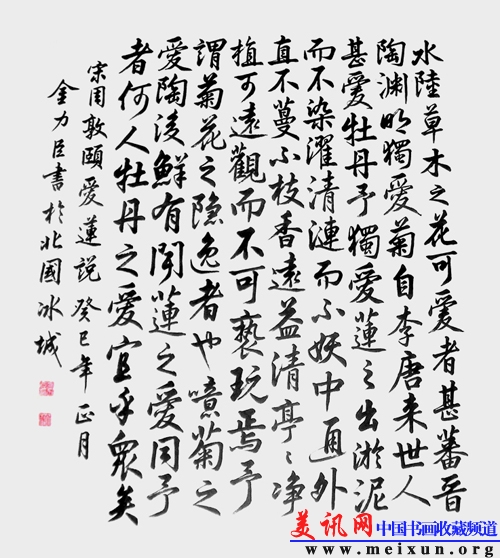 水陸草木之花可愛者甚蕃晉
陶渊明獨愛菊自李唐来世人
甚愛牡丹予獨愛蓮之出淤泥
而不染濯清漣而不妖中通外
直不蔓不枝香遠益清亭〻净
植可遠觀而不可褻玩焉予
謂菊花之隐逸者也噫菊之
愛陶後鮮有聞蓮之愛同予
者何人牡丹之愛宜乎衆矣
宋周敦頤愛蓮說癸巳年正月
金力臣書於北國冰城
美讯网中国书画收藏频道
www.meixun.org